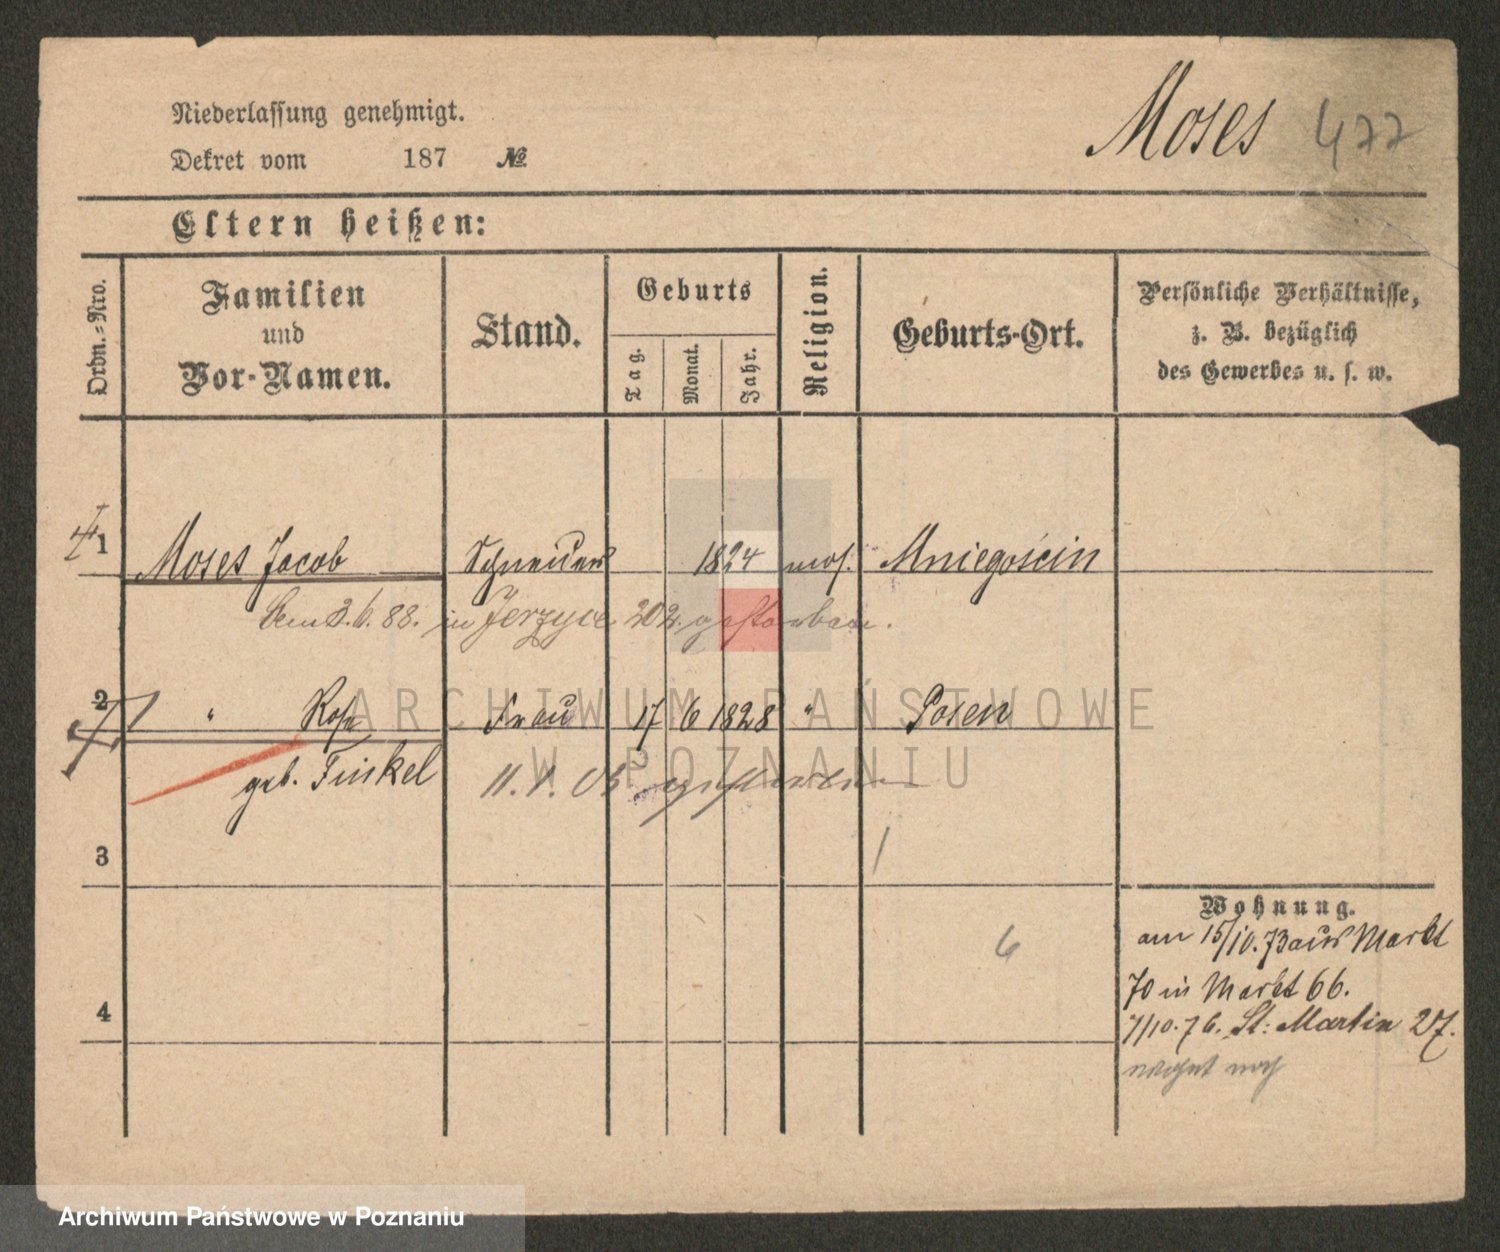 Niederlassung genehmigt.
Dekret vom 187 №
Moses 477
Eltern heißen:
Ordn.-Nro.
Familien und Vor-Namen.
Stand.
Geburts
Tag.
Monat.
Jahr.
Religion.
Geburts-Ort.
Persönliche Verhältnisse,
z. B. bezüglich
des Gewerbes u. s. w.
1 Moses Jacob Schneider 1824 mos. Mniegościn
in Jerzyce 202. gestorben.
2 " Rosa Frau 17 6 1828 " Posen
geb. Finkel 11. gestorben
3
6
4
Wohnung.
am 15/10. 73 aus Markt
70 in Markt 66.
7/10. 76. St: Martin 27.
wohnt noch
ARCHIWUM PAŃSTWOWE
W POZNANIU
Archiwum Państwowe w Poznaniu